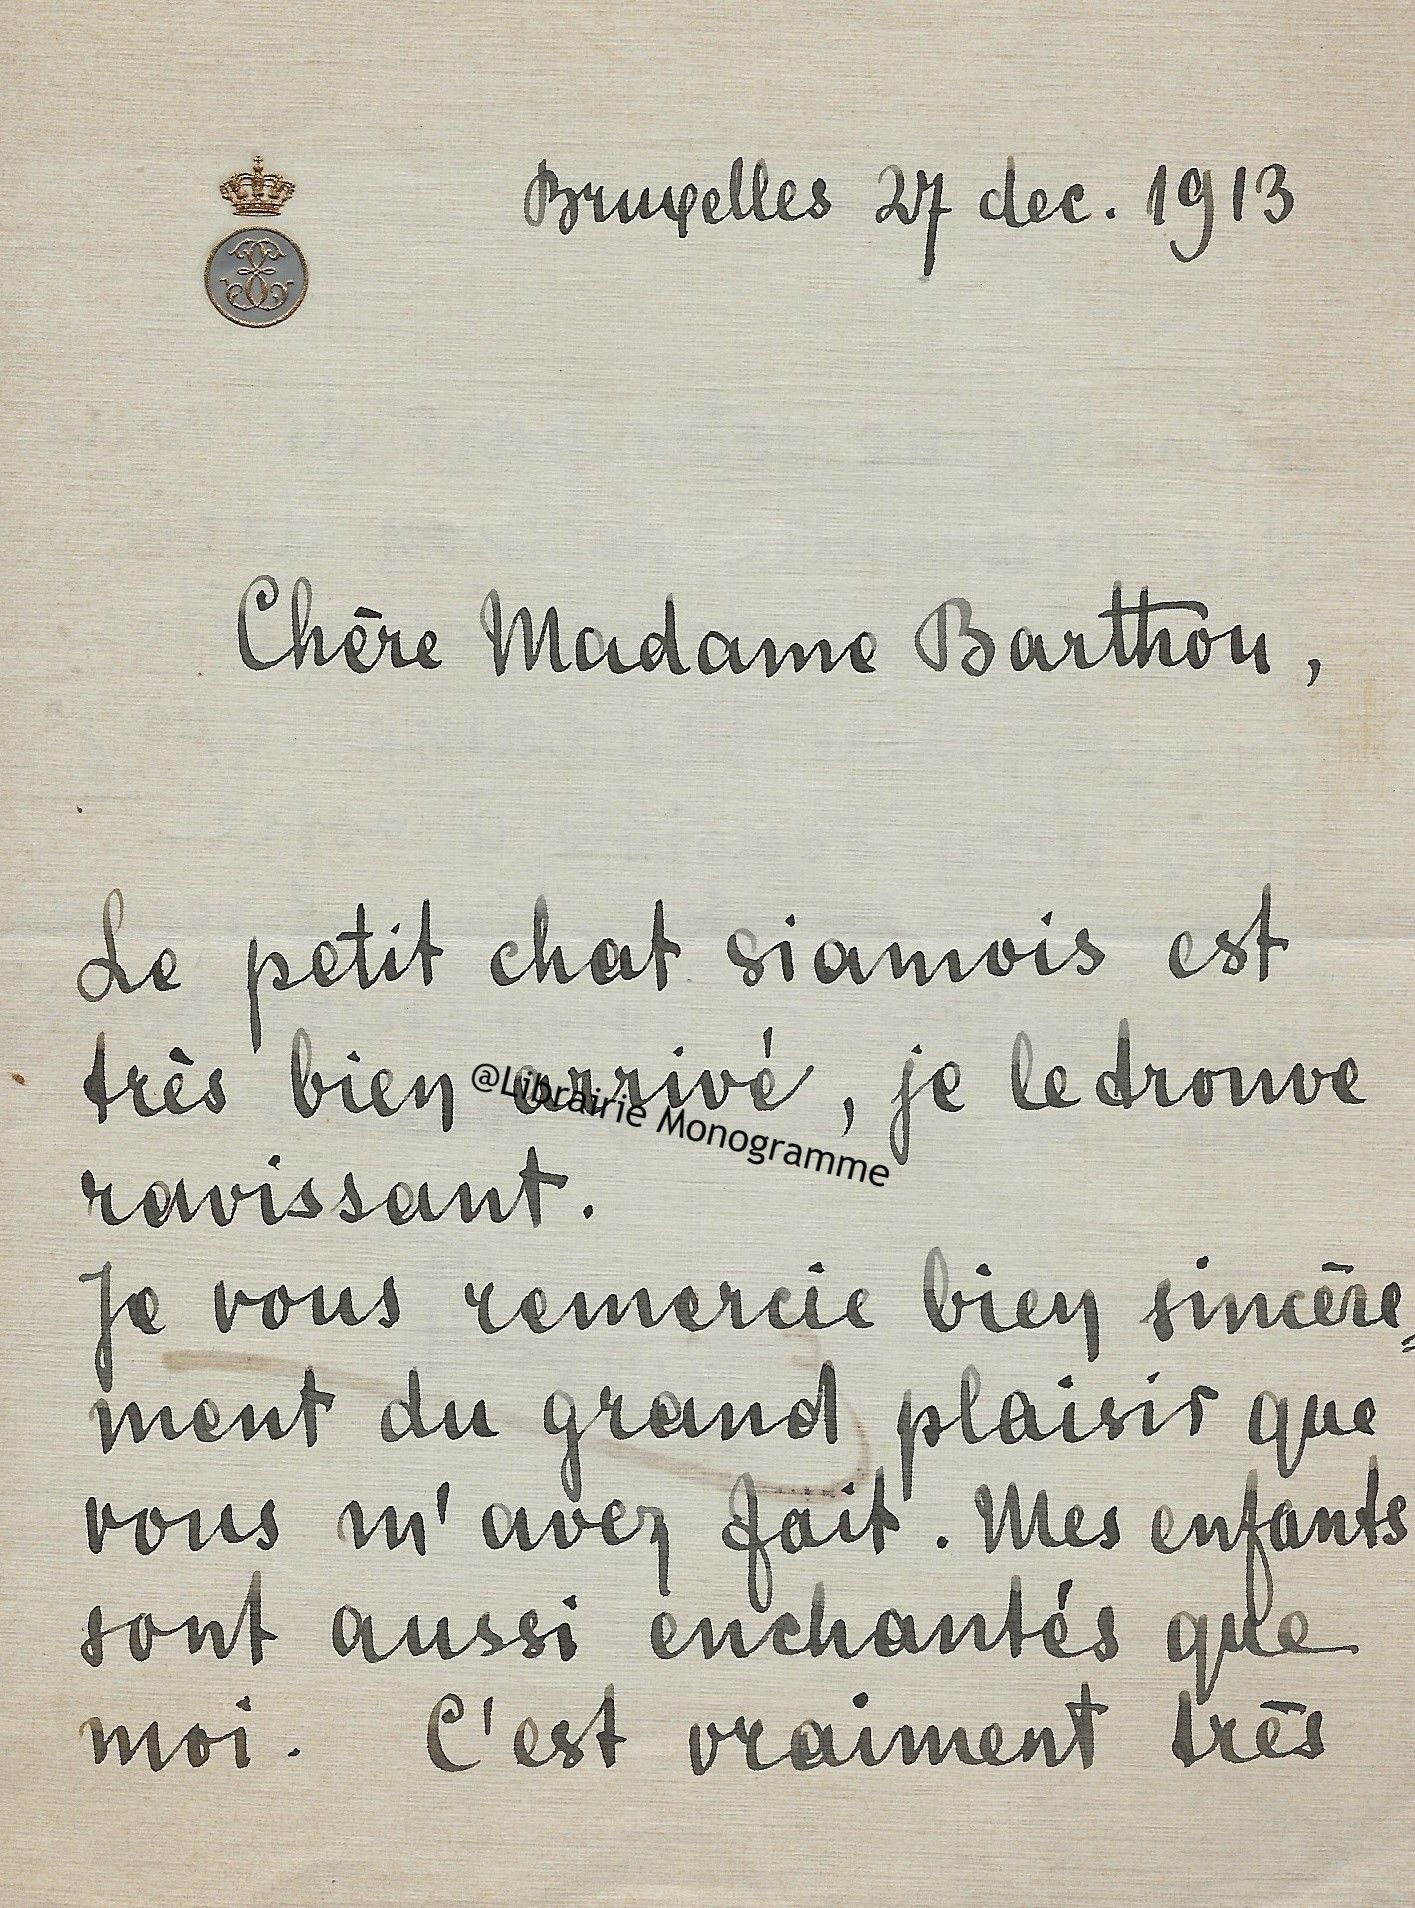 Bruxelles 27 dec. 1913
Chère Madame Barthou,
Le petit chat siamois est
très bien arrivé, je le trouve
@Librairie Monogramme
ravissant.
Je vous remercie bien sincère,
ment du grand plaisir que
vous m'avez fait. Mes enfants
sont aussi enchantés que
moi. C'est vraiment très